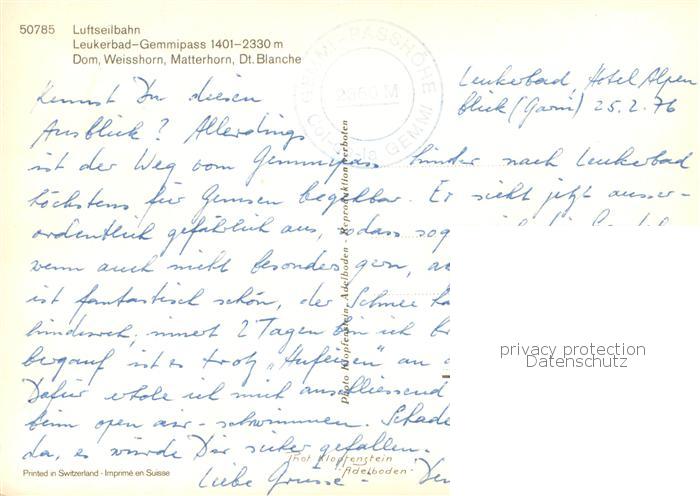 50785 Luftseilbahn
Leukerbad–Gemmipass 1401–2330 m
Dom, Weisshorn, Matterhorn, Dt. Blanche
GEMMI-PASSHÖHE
2350 M
GEMMI
Leukerbad, Hotel Alpen
blick (Garni) 25.2.76
Kennst Du diesen
Ausblick? Allerdings
ist der Weg vom Gemmipass hinder nach Leukerbad
höchstens für Gemsen begehbar. Er sieht jetzt ausser-
ordentlich gefährlich aus, sodass sog
wenn auch nicht besonders gern,
ist fantastisch schön, der Schnee
innert 2 Tagen bin ich
bergauf ist es trotz „Hufeisen" an
Dafür erhole ich mich anschliessend
beim open air-schwimmen. Schade
da, es würde Dir sicher gefallen.
Liebe Grüsse -
Photo Klopfenstein, Adelboden - Reproduktion verboten
Phot Klopfenstein
Adelboden
Printed in Switzerland - Imprimé en Suisse
privacy protection
Datenschutz